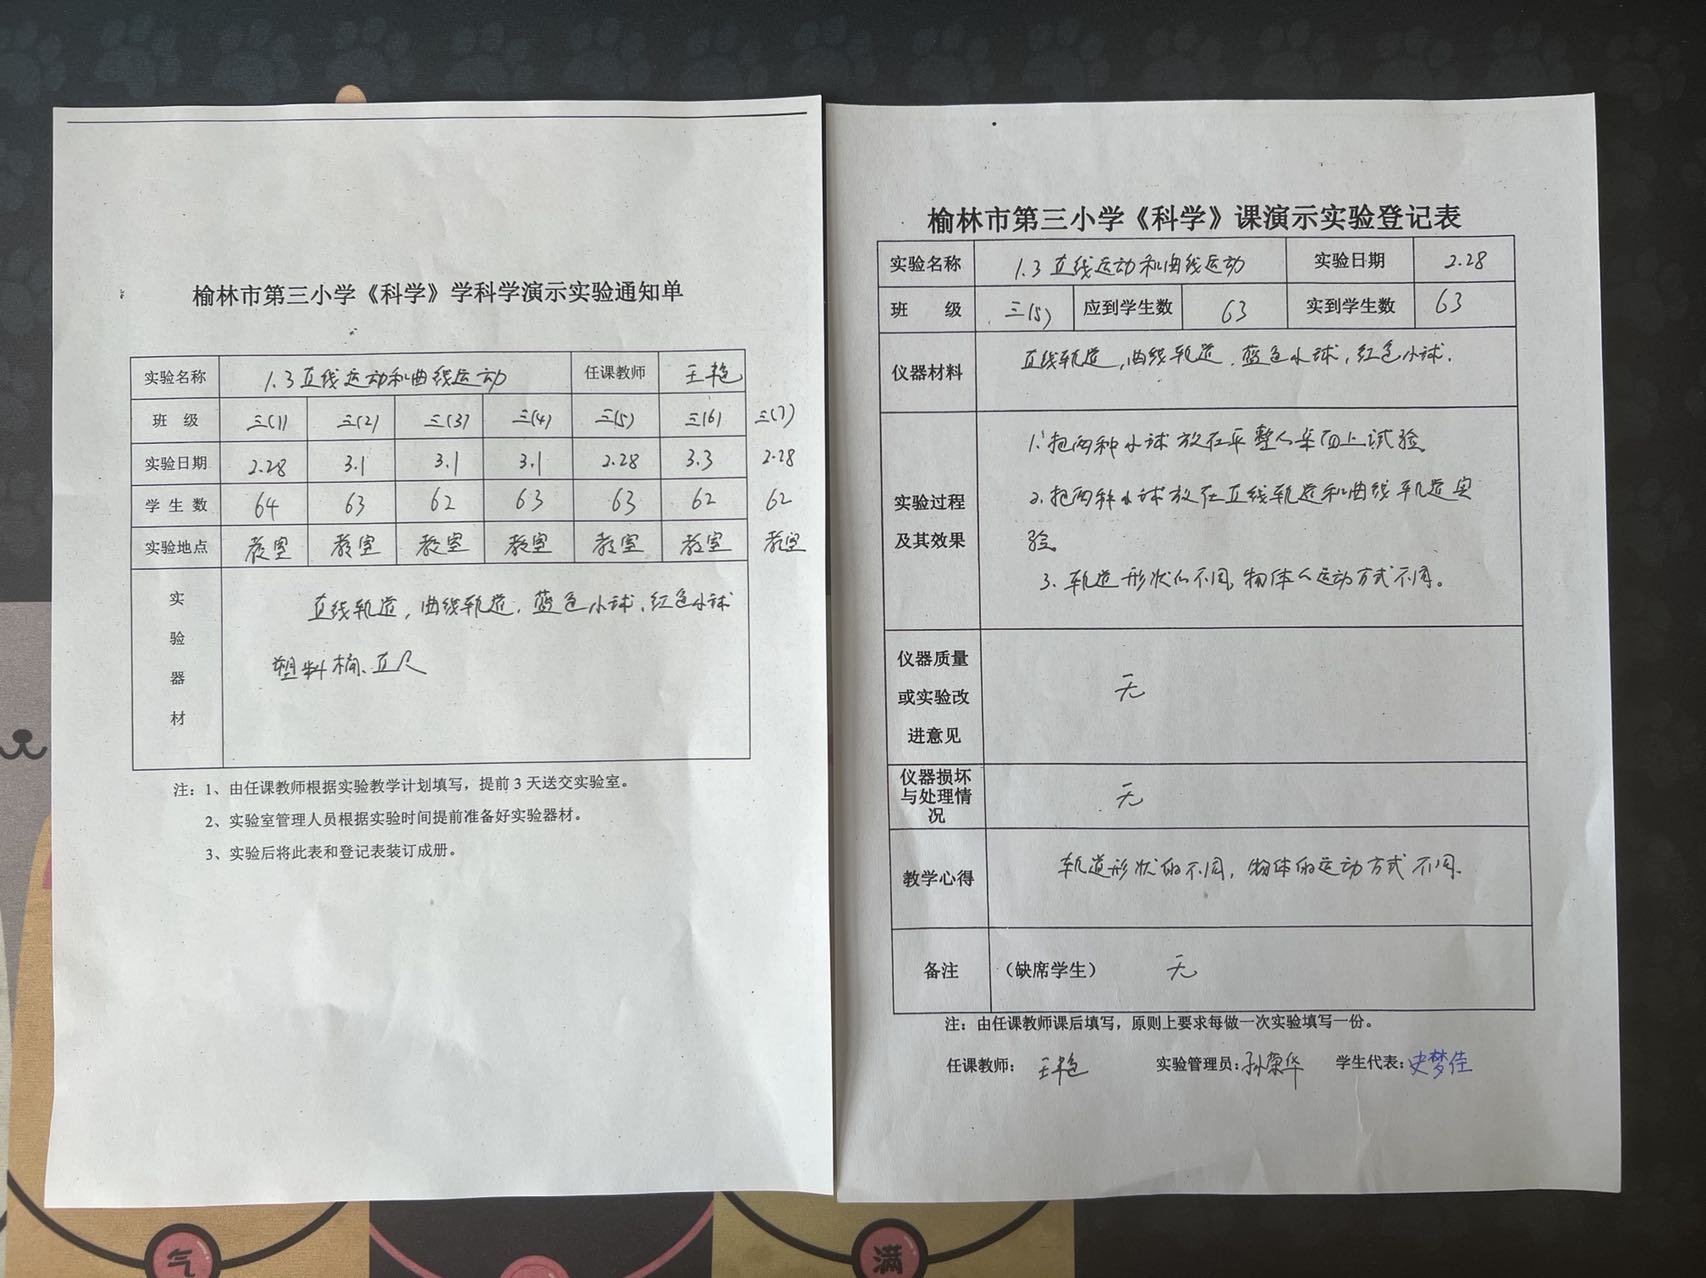 榆林市第三小学《科学》学科学演示实验通知单
实验名称 1.3直线运动和曲线运动 任课教师 王艳
班 级 三(1) 三(2) 三(3) 三(4) 三(5) 三(6) 三(7)
实验日期 2.28 3.1 3.1 3.1 2.28 3.3 2.28
学 生 数 64 63 62 63 63 62 62
实验地点 教室 教室 教室 教室 教室 教室 教室
实验器材
直线轨道,曲线轨道,蓝色小球,红色小球
塑料桶、直尺
注:1、由任课教师根据实验教学计划填写,提前3天送交实验室。
2、实验室管理人员根据实验时间提前准备好实验器材。
3、实验后将此表和登记表装订成册。
榆林市第三小学《科学》课演示实验登记表
实验名称 1.3直线运动和曲线运动 实验日期 2.28
班 级 三(5) 应到学生数 63 实到学生数 63
仪器材料 直线轨道,曲线轨道,蓝色小球,红色小球.
实验过程
及其效果
1.把两种小球放在平整的桌面上试验.
2.把两种小球放在直线轨道和曲线轨道实
验.
3.轨道形状的不同,物体的运动方式不同。
仪器质量
或实验改
进意见
无
仪器损坏
与处理情
况
无
教学心得 轨道形状的不同,物体的运动方式不同.
备注 (缺席学生) 无
注:由任课教师课后填写,原则上要求每做一次实验填写一份。
任课教师: 王艳 实验管理员:孙荣华 学生代表:史梦佳
气
满